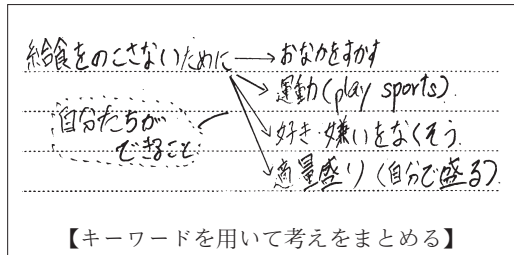 給食をのこさないために→おなかをすかす
運動(play sports).
自分たちが
できること
好き・嫌いをなくそう.
適量盛り(自分で盛る).
【キーワードを用いて考えをまとめる】